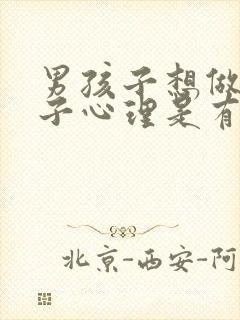 男孩子想做
子心理是有
北京-西安-阿